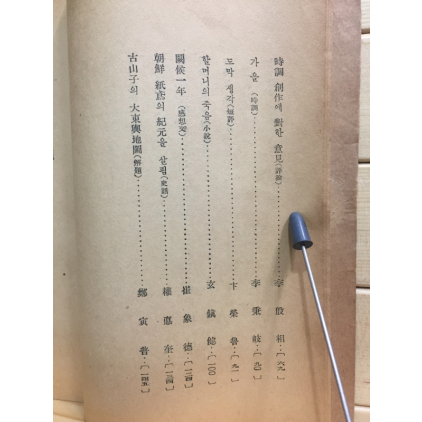 時調 創作에 對한 意見(評論)……李 殷 相…〔六九〕
가 을 (時調)……李 秉 岐…〔九〇〕
도막 생각(短評)……卞 榮 魯…〔九一〕
할머니의 죽음(小說)……玄 鎭 健…〔一00〕
闕侯一年 (感想文)……崔 象 德…〔一二四〕
朝鮮 紙鳶의 紀元을 살핌(史話)……權 悳 奎…〔一三四〕
古山子의 大東輿地圖(解題)……鄭 寅 普…〔一四五〕